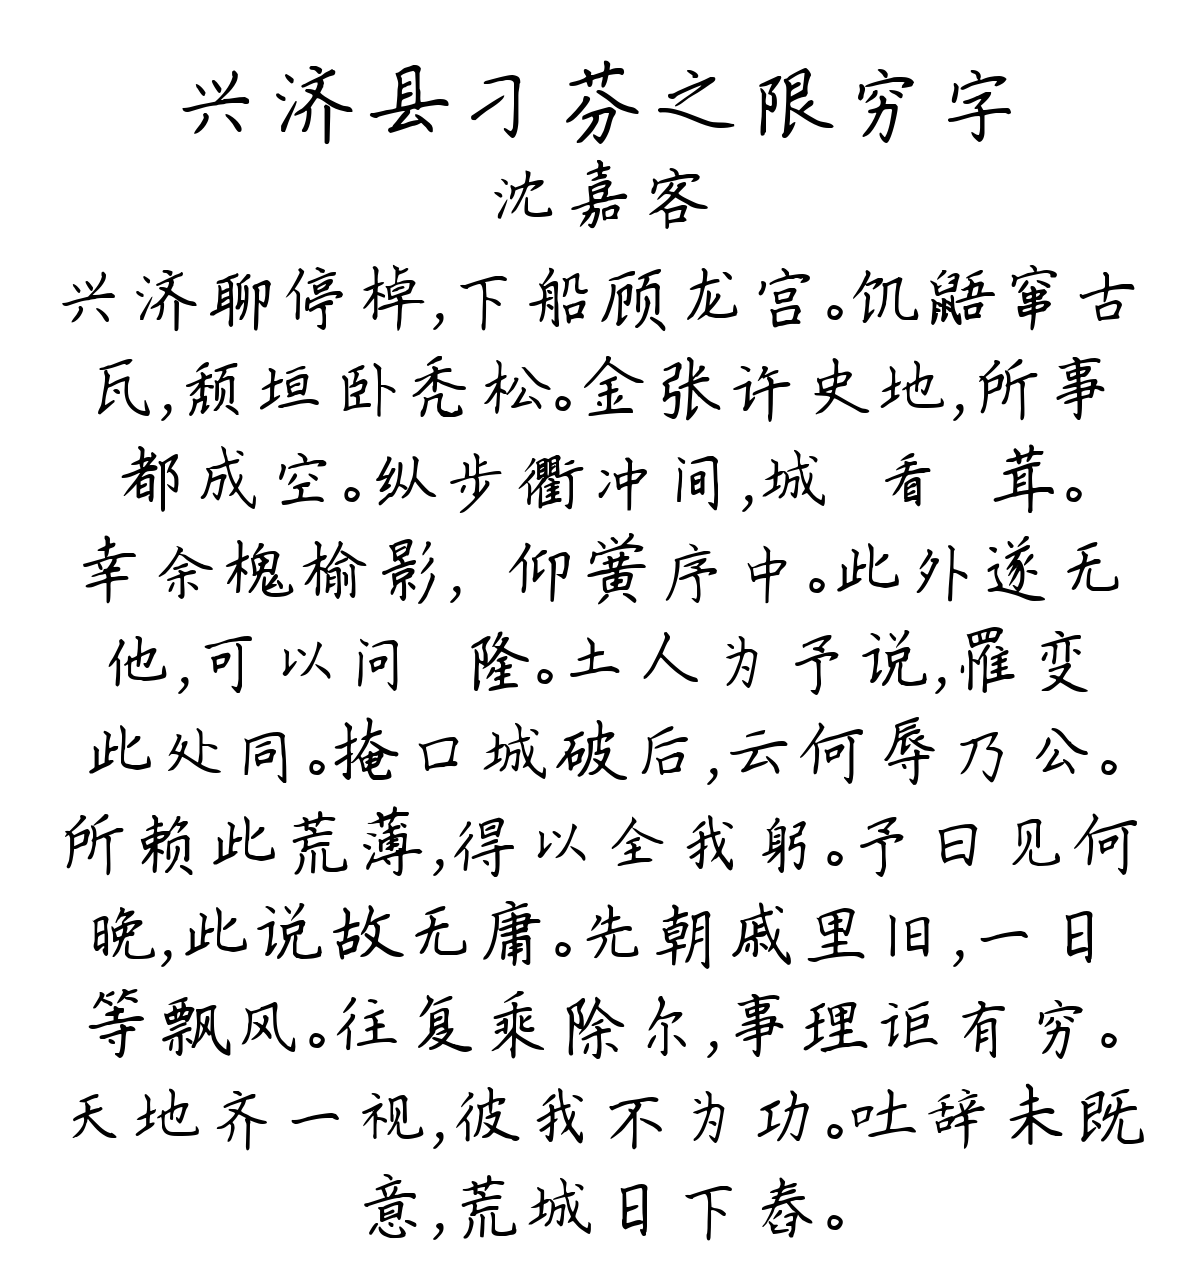 兴济县刁芬之限穷字
沈嘉客
兴济聊停棹,下船顾龙宫。饥鼯窜古
瓦,颓垣卧秃松。金张许史地,所事
都成空。纵步衢冲间,城 看 茸。
幸余槐榆影, 仰黉序中。此外遂无
他,可以问 隆。土人为予说,罹变
此处同。掩口城破后,云何辱乃公。
所赖此荒薄,得以全我躬。予曰见何
晚,此说故无庸。先朝戚里旧,一日
等飘风。往复乘除尔,事理讵有穷。
天地齐一视,彼我不为功。吐辞未既
意,荒城日下舂。